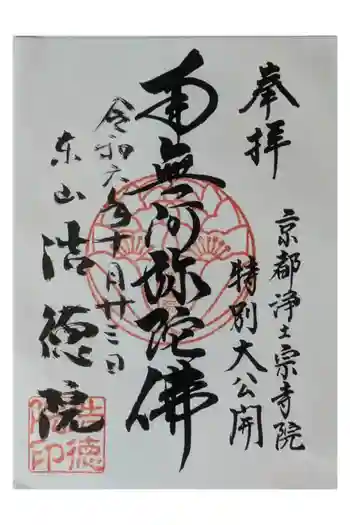 奉拝
京都浄土宗寺院
特別大公開
南無阿弥陀佛
令和六年十月廿三日
東山
浩徳院